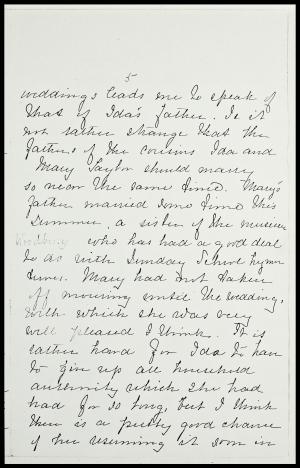 5
weddings leads me to speak of
that of Ida's father. Is it
not rather strange that the
fathers of the cousins Ida and
Mary Taylor should marry
so near the same time. Mary's
father married some time this
Summer, a sister of the
Woodbury who has had a good deal
to do with Sunday School hymn
tunes. Mary had not taken
off mourning until the wedding,
with which she was very
well pleased I think. It is
rather hard for Ida to have
to give up all household
authority which she had
had for so long, but I think
there is a pretty good chance
of her resuming it soon in